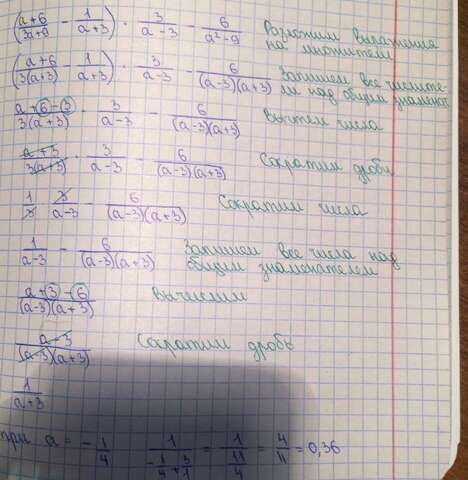 (a+6/3a+9 - 1/a+3) · 3/a-3 - 6/a²-9 Разложим выражения на множители
(a+6/3(a+3) - 1/a+3) · 3/a-3 - 6/(a-3)(a+3) Запишем все числители над общим знаменат
a+6-3/3(a+3) · 3/a-3 - 6/(a-3)(a+3) Вычтем числа
a+3/3(a+3) · 3/a-3 - 6/(a-3)(a+3) Сократим дробь
1/3 · 3/a-3 - 6/(a-3)(a+3) Сократим числа
1/a-3 - 6/(a-3)(a+3) Запишем все числа над общим знаменателем
a+3-6/(a-3)(a+3) Вычислим
a-3/(a-3)(a+3) Сократим дробь
1/a+3
при a = -1/4 1/-1/4+3/1 = 1/11/4 = 4/11 = 0,36